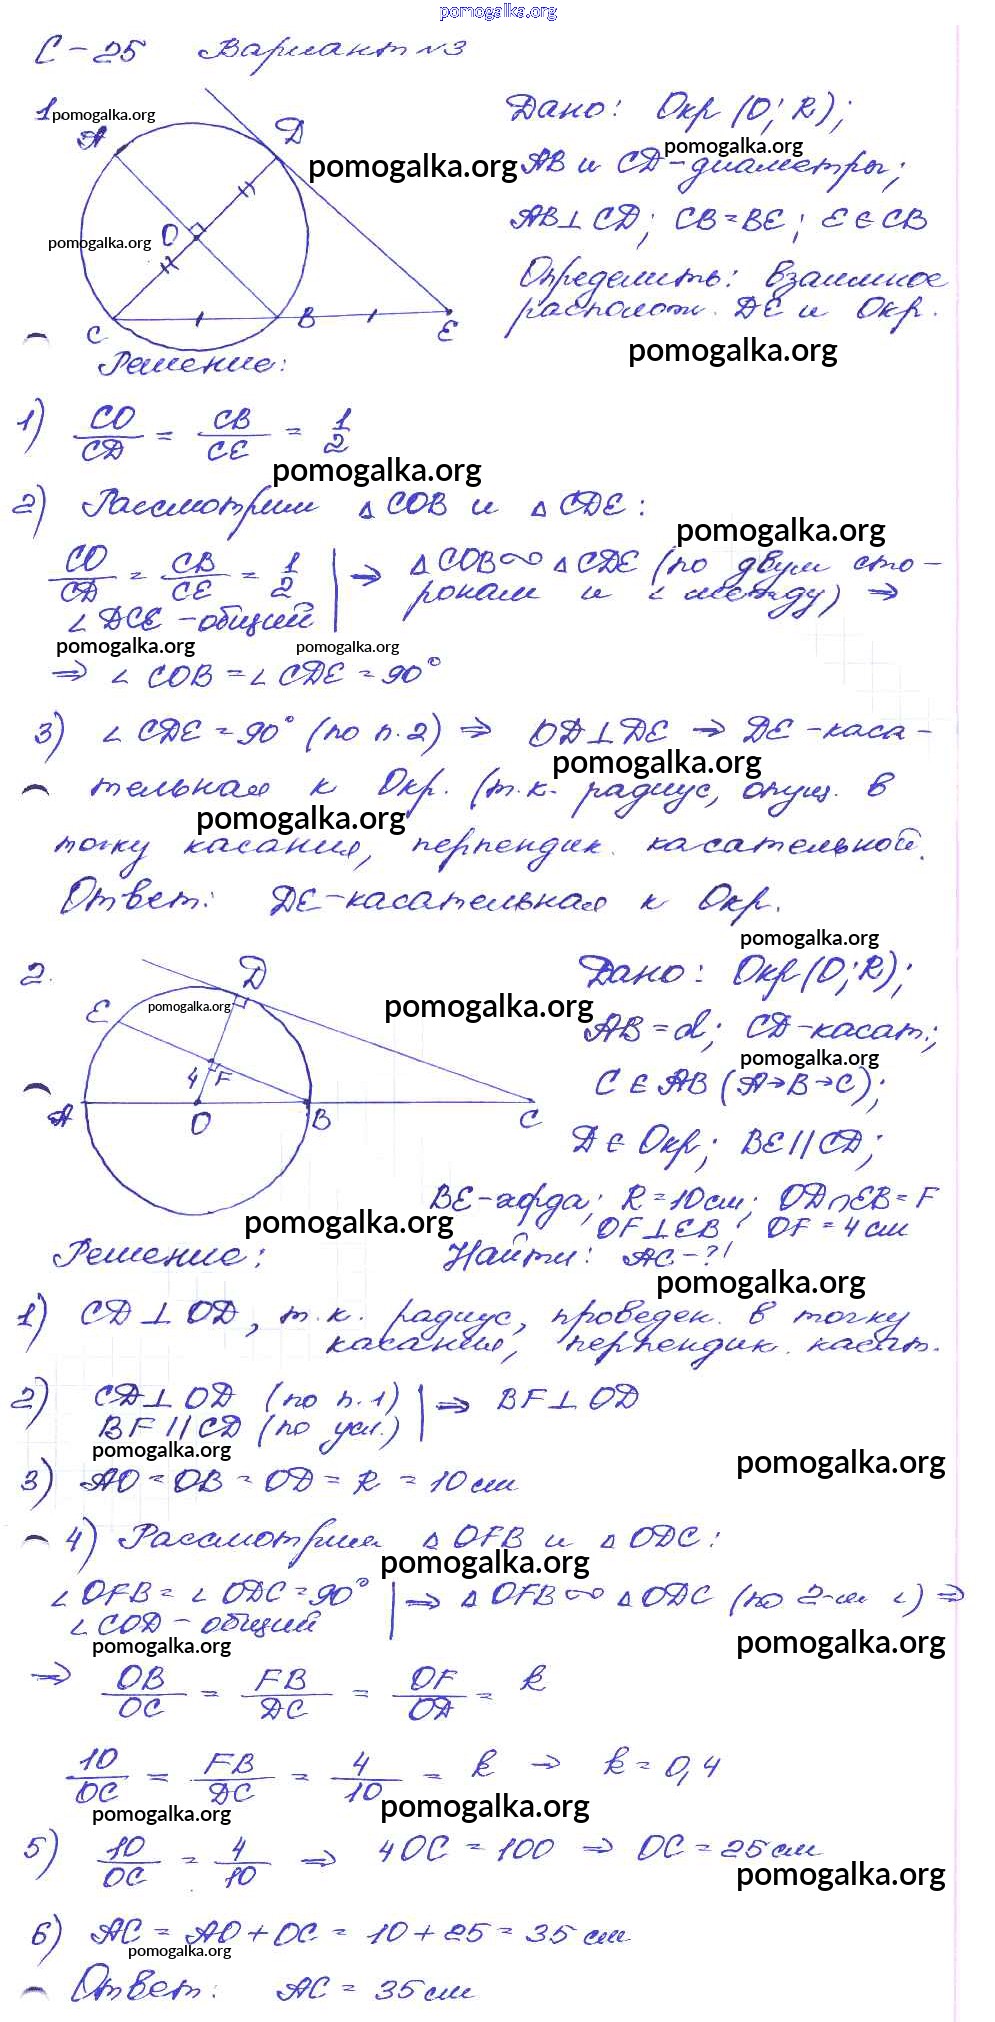 pomogalka.org
С-25 Вариант №3
1. pomogalka.org
A D
pomogalka.org
O
pomogalka.org
C B E
Дано: Окр (O; R);
pomogalka.org
AB и CD - диаметры;
AB ⊥ CD; CB = BE; E ∈ CB
Определить: взаимное
располож. DE и Окр.
pomogalka.org
Решение:
1) CO/CD = CB/CE = 1/2
pomogalka.org
2) Рассмотрим △COB и △CDE:
pomogalka.org
CO/CD = CB/CE = 1/2 | ⇒ △COB ∞ △CDE (по двум сто-
∠DCE - общий | ронам и ∠ между) ⇒
pomogalka.org pomogalka.org
⇒ ∠COB = ∠CDE = 90°
3) ∠CDE = 90° (по п.2) ⇒ OD ⊥ DE ⇒ DE - каса-
pomogalka.org
тельная к Окр. (т.к. радиус, опущ. в
pomogalka.org
точку касания, перпендик. касательной.
Ответ: DE - касательная к Окр.
pomogalka.org
2.
D
E pomogalka.org pomogalka.org
4 F
A O B C
Дано: Окр (O; R);
AB = d; CD - касат.;
pomogalka.org
C ∈ AB (A → B → C);
D ∈ Окр; BE // CD;
BE - хорда; R = 10 см; OD ∩ EB = F
pomogalka.org
OF ⊥ EB; OF = 4 см
Решение: Найти: AC - ?!
pomogalka.org
1) CD ⊥ OD, т.к. радиус, проведен. в точку
касания, перпендик. касат.
2) CD ⊥ OD (по п.1) | ⇒ BF ⊥ OD
BF // CD (по усл.) |
pomogalka.org pomogalka.org
3) AO = OB = OD = R = 10 см
4) Рассмотрим △OFB и △ODC:
pomogalka.org
∠OFB = ∠ODC = 90° | ⇒ △OFB ∞ △ODC (по 2-м ∠) ⇒
∠COD - общий |
pomogalka.org pomogalka.org
⇒ OB/OC = FB/DC = OF/OD = k
10/OC = FB/DC = 4/10 = k ⇒ k = 0,4
pomogalka.org pomogalka.org
5) 10/OC = 4/10 ⇒ 4OC = 100 ⇒ OC = 25 см
pomogalka.org
6) AC = AO + OC = 10 + 25 = 35 см
pomogalka.org
Ответ: AC = 35 см